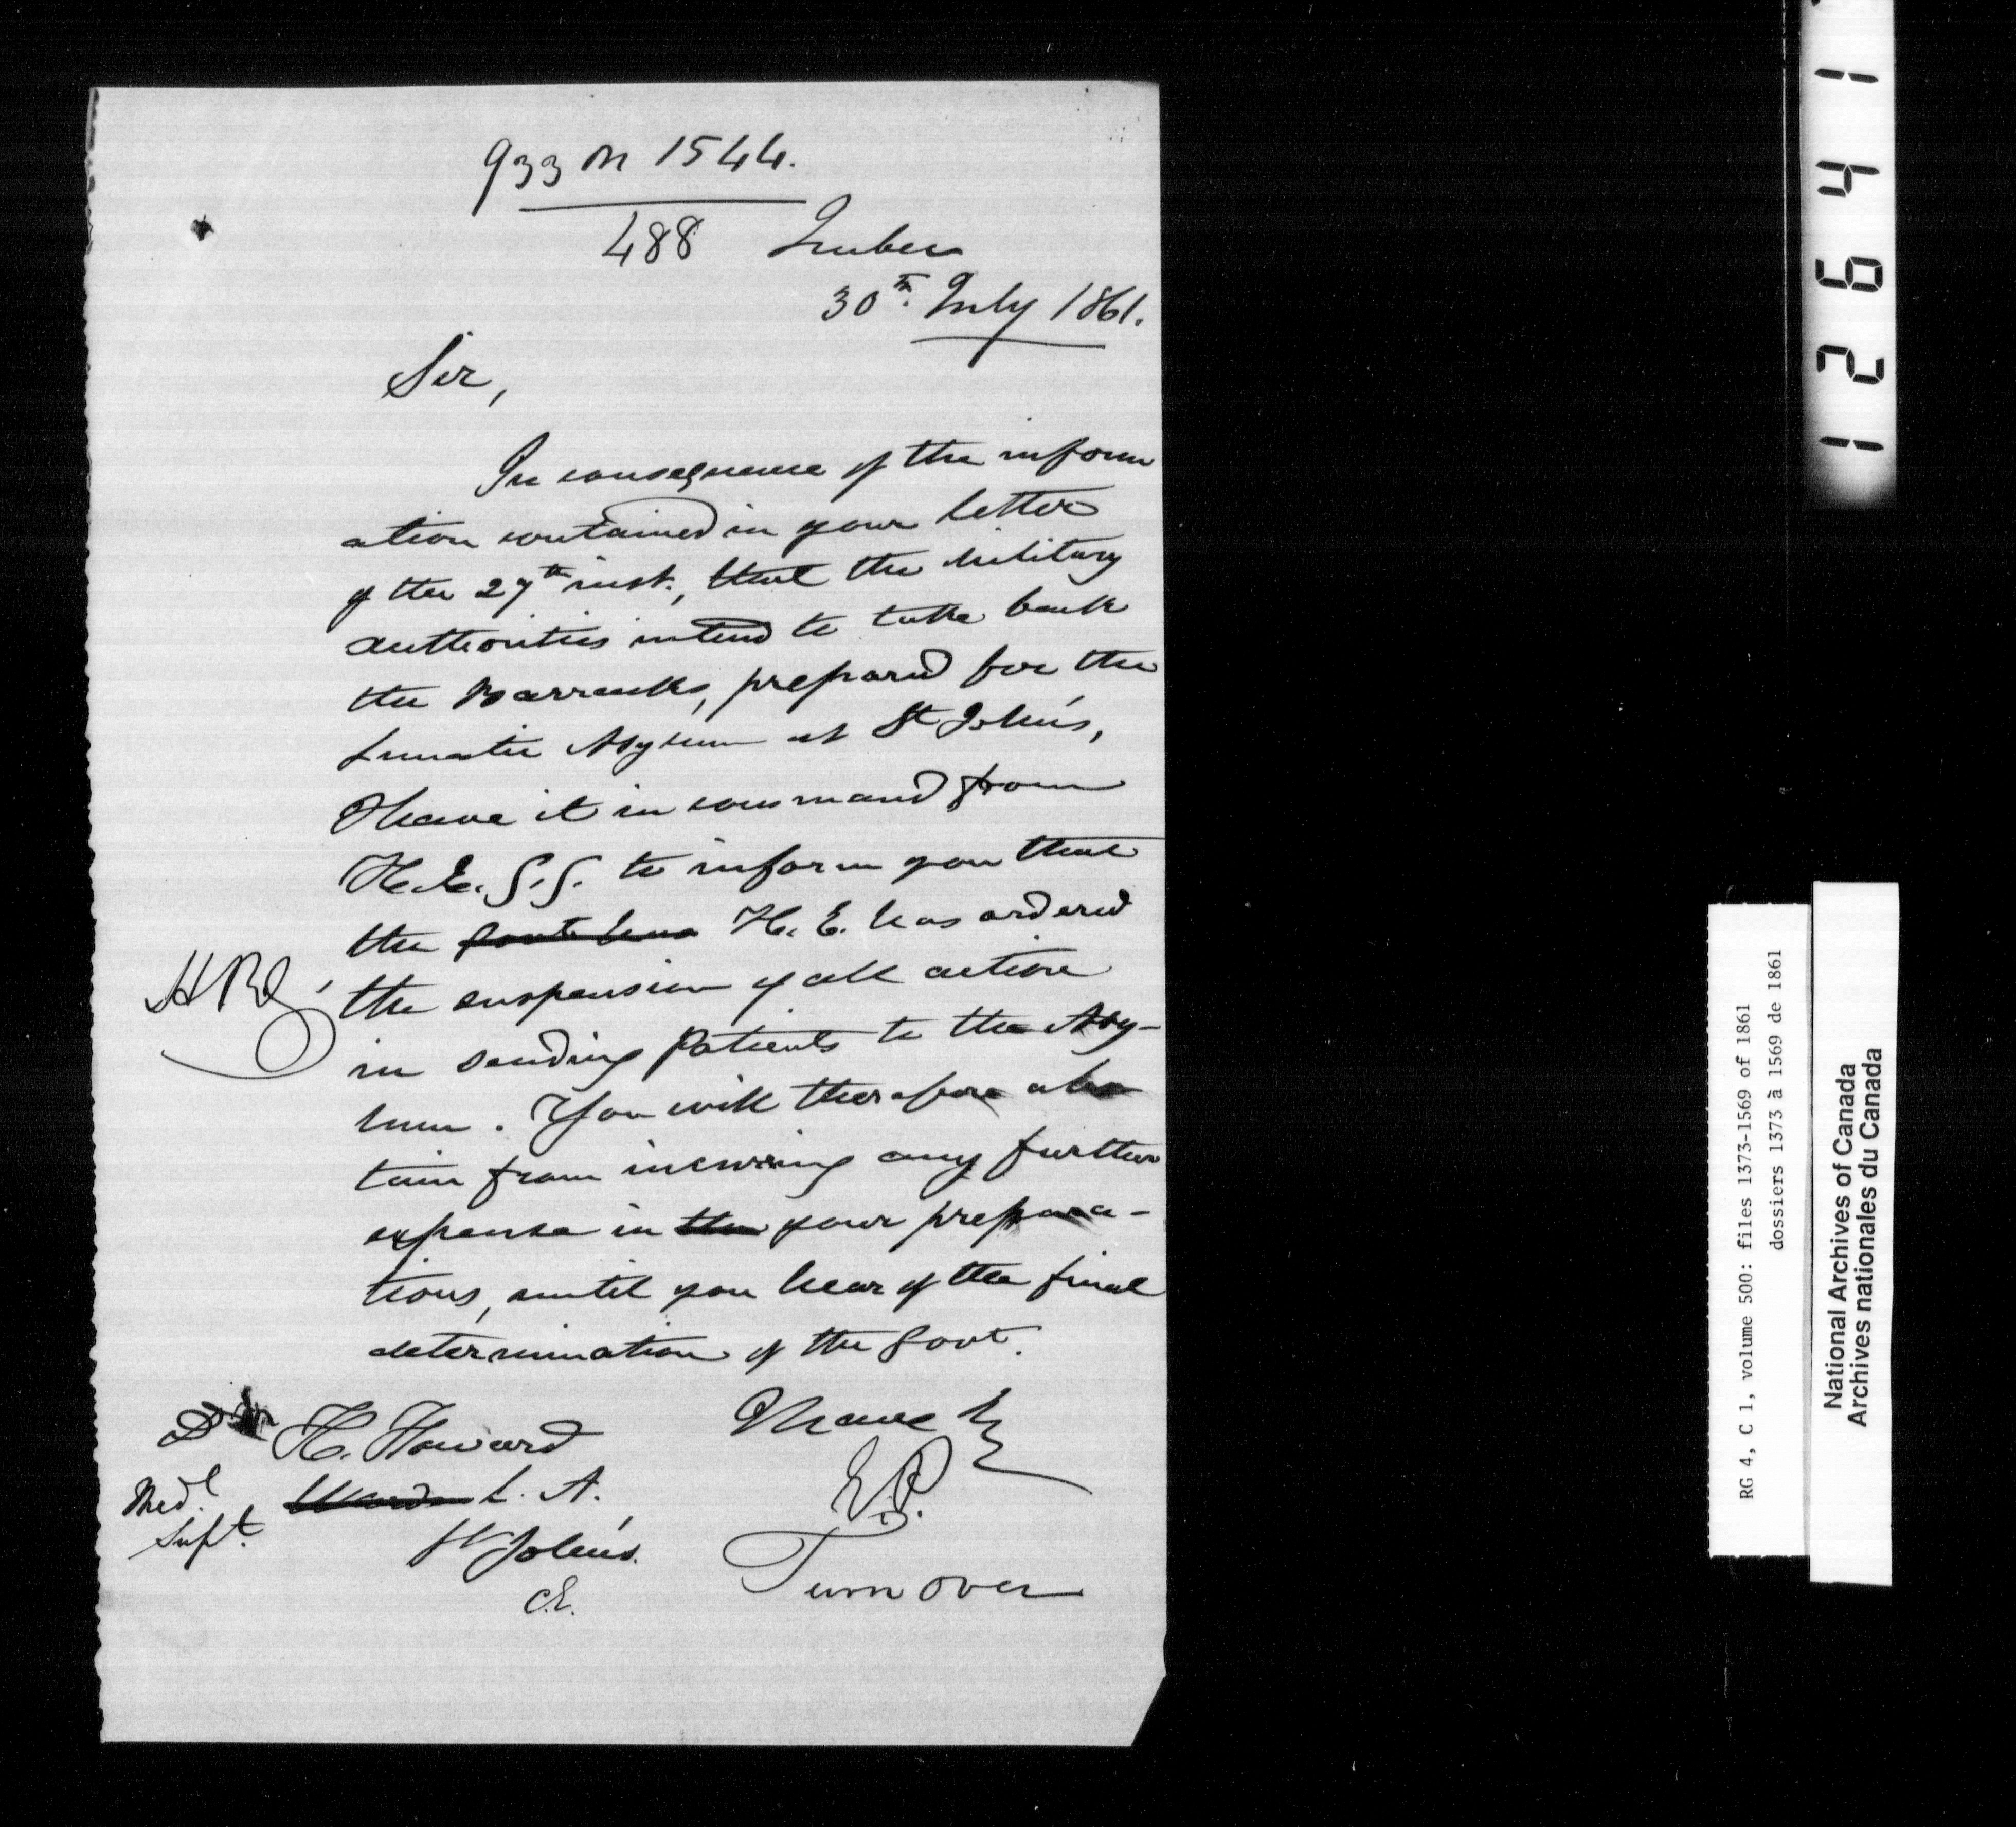 933 on 1544.
488 Quebec
30th. July 1861.
Sir,
In consequence of the inform
ation contained in your letter
of the 27th inst., that the Military
authorities intend to take back
the Barracks, prepared for the
Lunatic Asylum at St John's,
I have it in command from
H.E. G.G. to inform you that
the Govt. has H. E. has ordered
the suspension of all action
in sending Patients to the Asy-
lum. You will therefore abs
tain from incurring any further
expense in the your prepara-
tions, until you hear of the final
determination of the Govt.
I have &
E.P.
Dr H. Howard
Medl. Supt. Warden L. A.
St John's.
C.E.
Turn over
1 2 6 4 1
RG 4, C 1, volume 500: files 1373-1569 of 1861
dossiers 1373 à 1569 de 1861
National Archives of Canada
Archives nationales du Canada